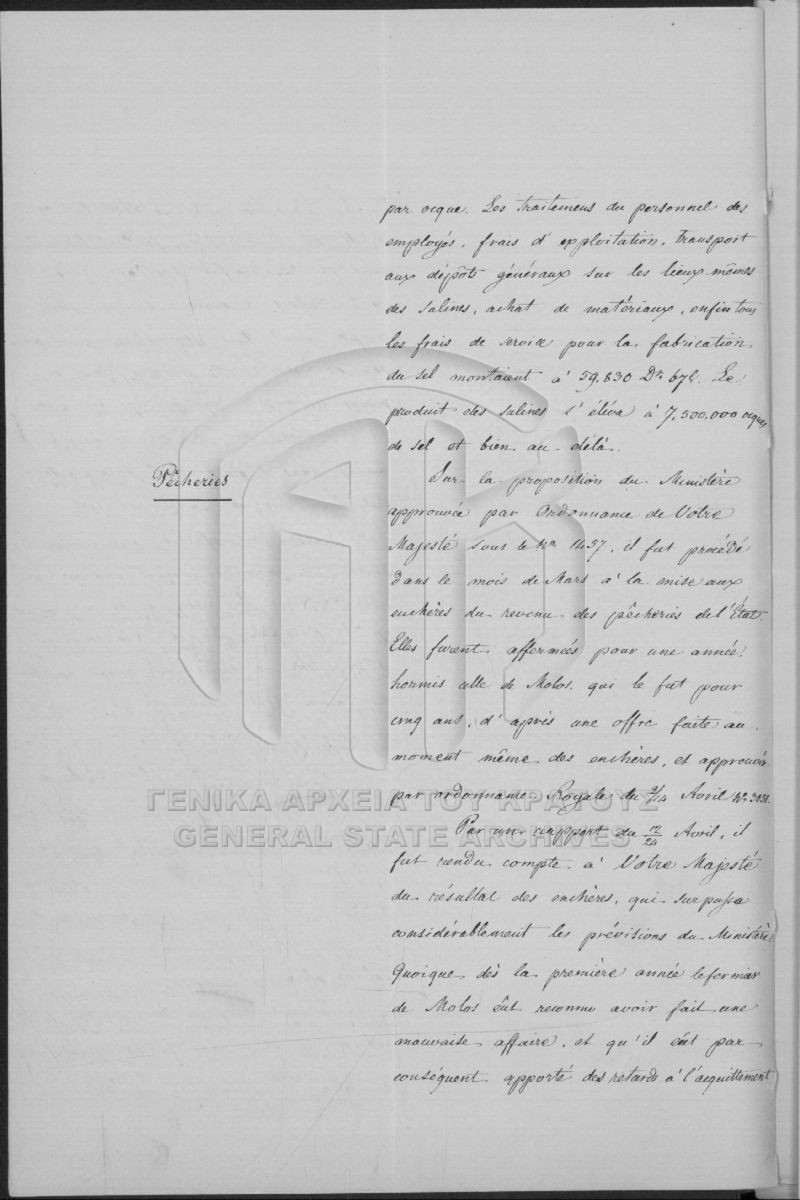 par ocque. Les traitemens du personnel des
employés, frais d'exploitation, transport
aux dépôts généraux sur les lieux mêmes
des salines, achat de matériaux, enfin tous
les frais de service pour la fabrication
du sel montaient à 59,830 Drs 67l. Le
produit des salines s'éleva à 7,500,000 ocques
de sel et bien au-délà.
Pêcheries
Sur la proposition du Ministère
approuvée par Ordonnance de Votre
Majesté sous le No 1457, il fut procédé
dans le mois de Mars à la mise aux
enchères du revenu des pêcheries de l'État.
Elles furent affermées pour une année,
hormis celle de Molos, qui le fut pour
cinq ans, d'après une offre faite au
moment même des enchères, et approuvée
par ordonnance Royale du 2/14 Avril No 3051.
ΓΕΝΙΚΑ ΑΡΧΕΙΑ ΤΟΥ ΚΡΑΤΟΥΣ
GENERAL STATE ARCHIVES
Par un rapport du 12/24 Avril, il
fut rendu compte à Votre Majesté
du résultat des enchères, qui surpassa
considérablement les prévisions du Ministère
Quoique dès la première année le fermier
de Molos eût reconnu avoir fait une
mauvaise affaire, et qu'il eût par
conséquent apporté des retards à l'acquittement